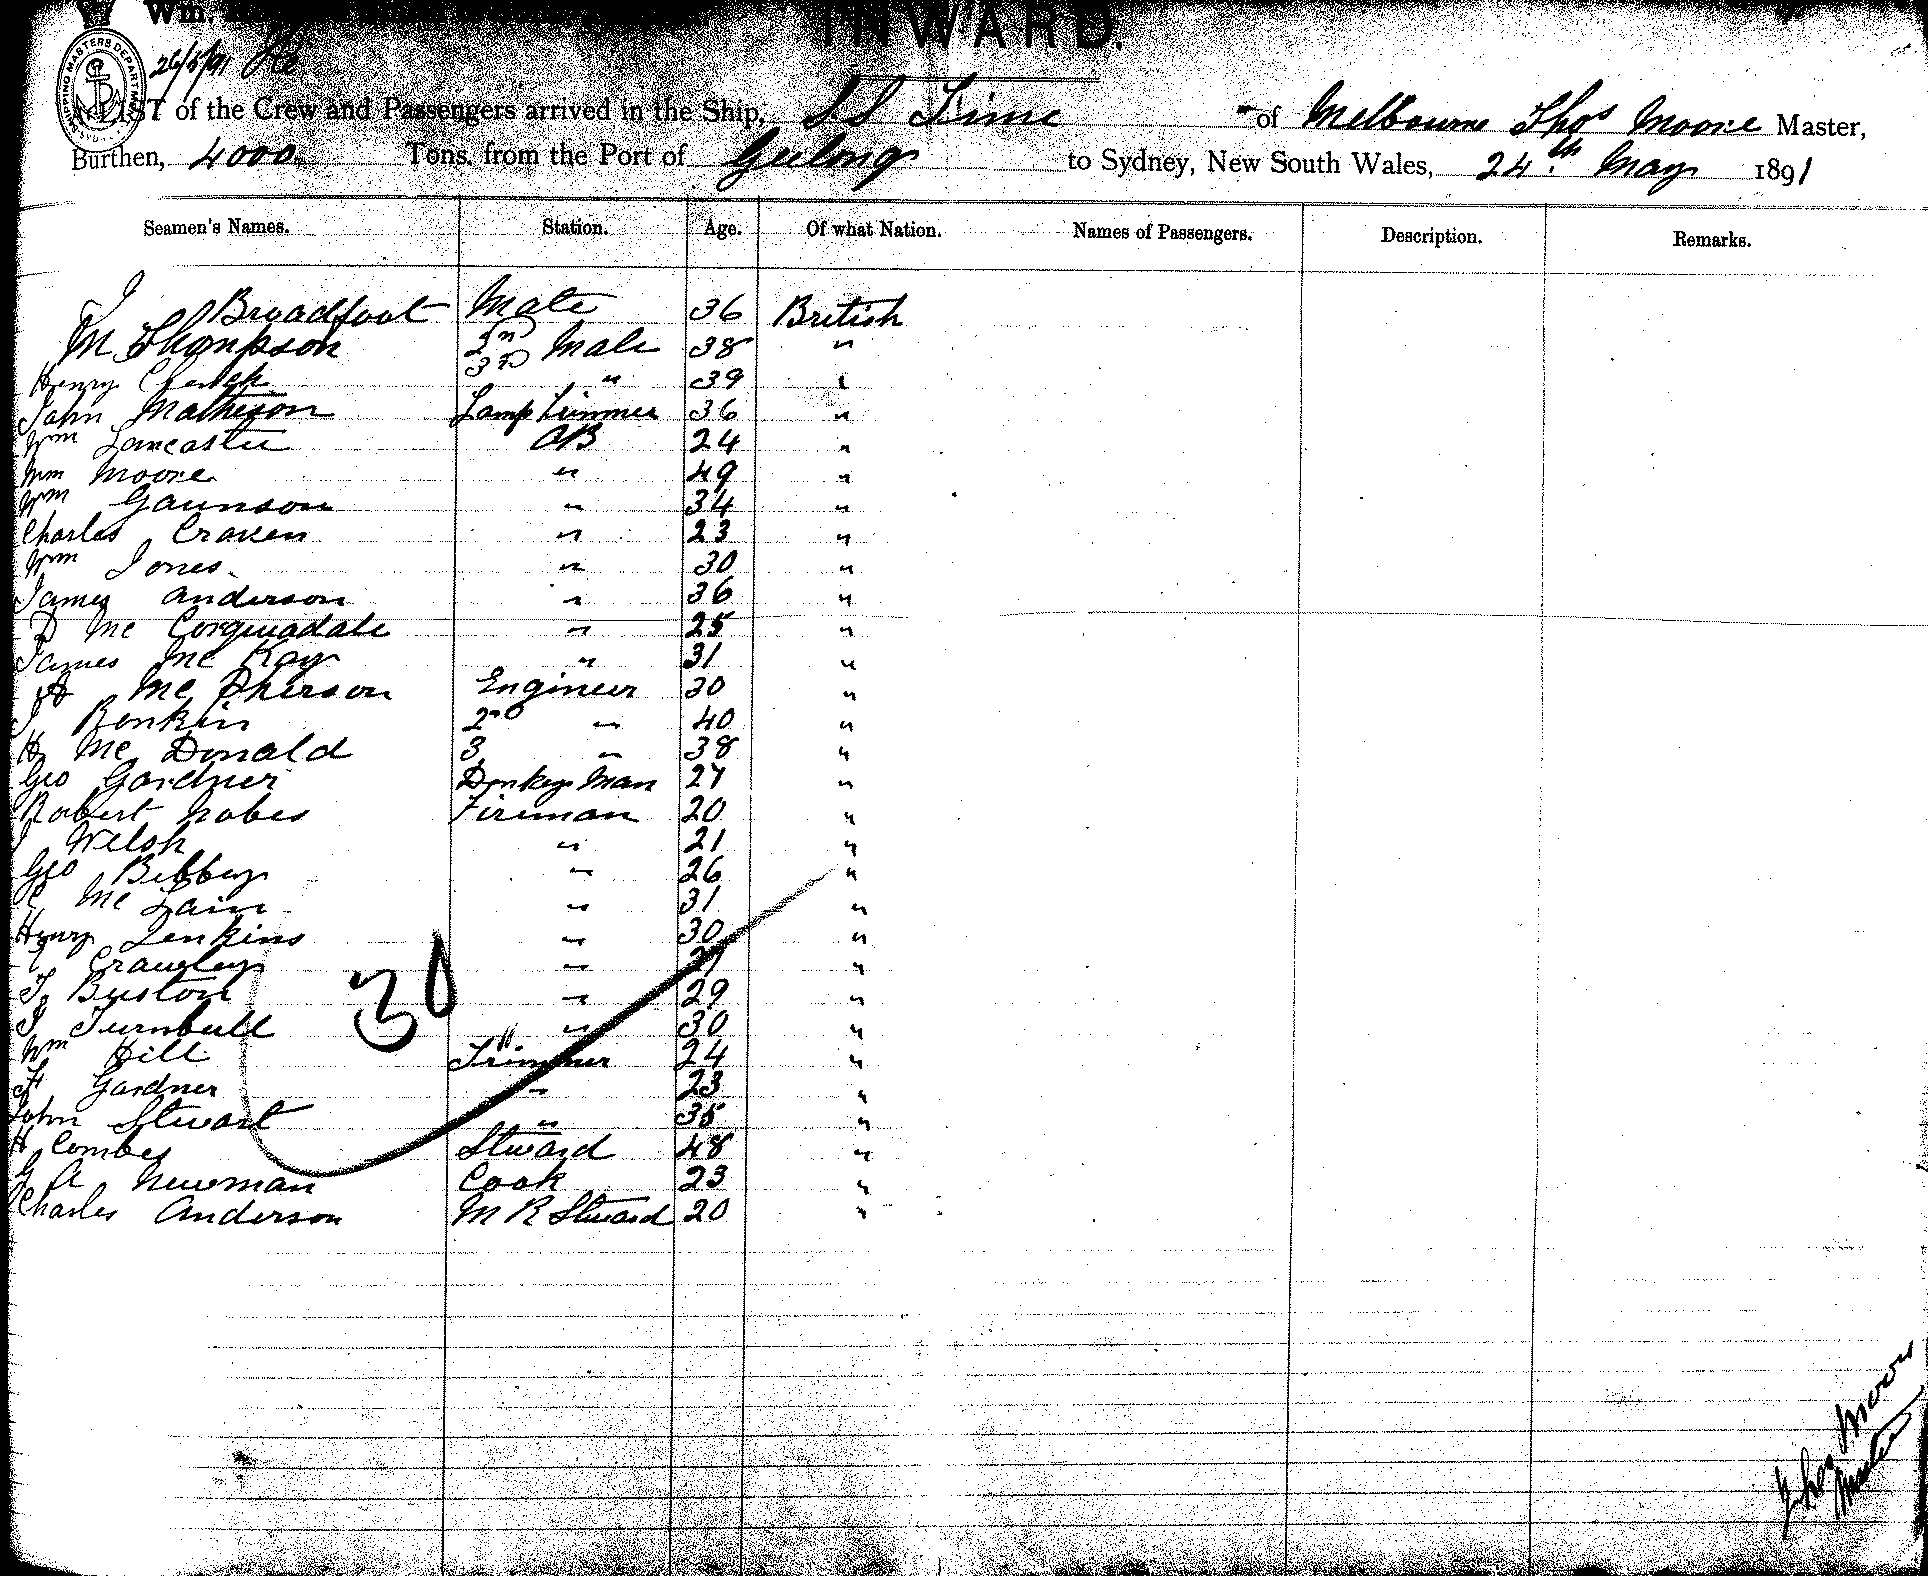 Wm.
INWARD.
SHIPPING MASTERS DEPARTMENT
26/5/91
A LIST of the Crew and Passengers arrived in the Ship, SS Time of Melbourne Thos Moore Master,
Burthen, 4000 Tons. from the Port of Geelong to Sydney, New South Wales, 24th May 1891
Seamen's Names. Station. Age. Of what Nation. Names of Passengers. Description. Remarks.
J Broadfoot Mate 36 British
M Thompson 2nd Mate 38 "
Henry 3rd " 39 "
John Matheson Lamp Trimmer 36 "
Wm Lancaster AB 24 "
Wm Moore " 49 "
Wm Gaunson " 34 "
Charles Craven " 23 "
Wm Jones " 30 "
James Anderson " 36 "
D Mc Corquadale " 25 "
James Mc Kay " 31 "
Mc Pherson Engineer 30 "
J Renkin 2nd " 40 "
H Mc Donald 3 " 38 "
Geo Gardner Donkey Man 27 "
Robert Nobes Fireman 20 "
J Welsh " 21 "
Geo Bibby " 26 "
Mc Lain " 31 "
Henry Jenkins " 30 "
Crawley " "
J. Buston " 29 "
J. Turnbull " 30 "
Wm Hill Trimmer 24 "
Gardner " 23 "
John Stewart " 35 "
H Combes Steward 48 "
G A Newman Cook 23 "
Charles Anderson M R Steward 20 "
30
Thos Moore
Master